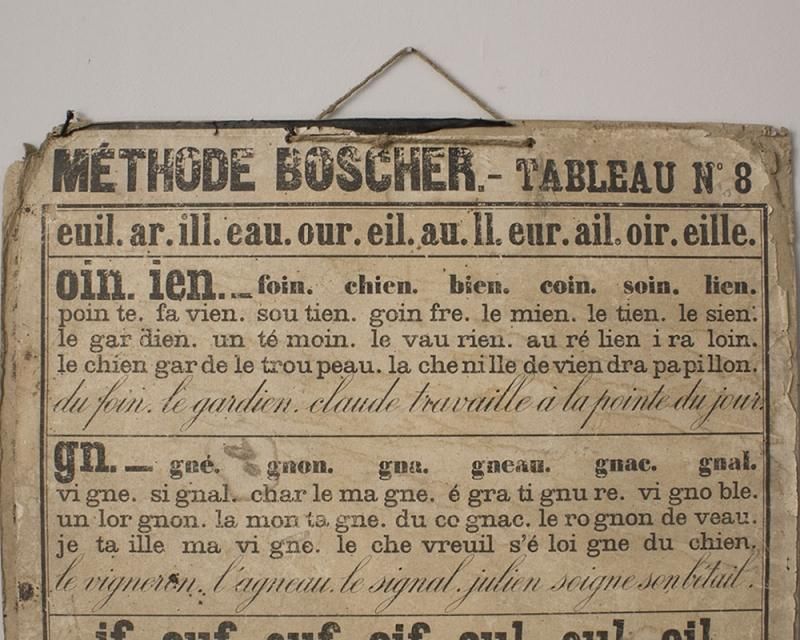 MÉTHODE BOSCHER.- TABLEAU N° 8
euil. ar. ill. eau. our. eil. au. ll. eur. ail. oir. eille.
oin. ien. _ foin. chien. bien. coin. soin. lien.
poin te. fa vien. sou tien. goin fre. le mien. le tien. le sien.
le gar dien. un té moin. le vau rien. au ré lien i ra loin.
le chien gar de le trou peau. la che ni lle de vien dra pa pi llon.
du foin. le gardien. claude travaille à la pointe du jour.
gn. _ gné. gnon. gna. gneau. gnac. gnal.
vi gne. si gnal. char le ma gne. é gra ti gnu re. vi gno ble.
un lor gnon. la mon ta gne. du co gnac. le ro gnon de veau.
je ta ille ma vi gne. le che vreuil s'é loi gne du chien.
le vigneron. l'agneau. le signal. julien soigne son bétail.